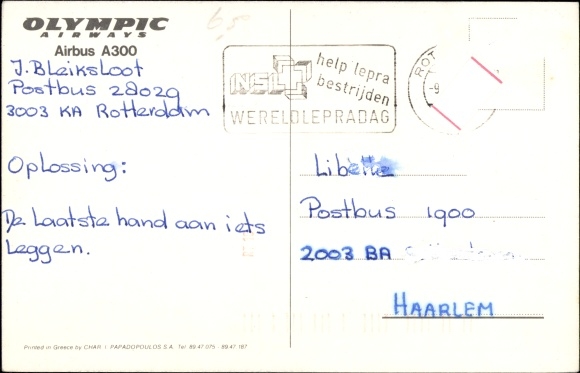 OLYMPIC
AIRWAYS
Airbus A300
J. Bleiksloot
Postbus 28029
3003 KA Rotterdam
Oplossing:
De laatste hand aan iets
leggen.
6,5
NSL
help lepra
bestrijden
WERELDLEPRADAG
RO
-9
Libelle
Postbus 1900
2003 BA
HAARLEM
Printed in Greece by CHAR. I. PAPADOPOULOS S.A. Tel. 89.47.075 - 89.47.187